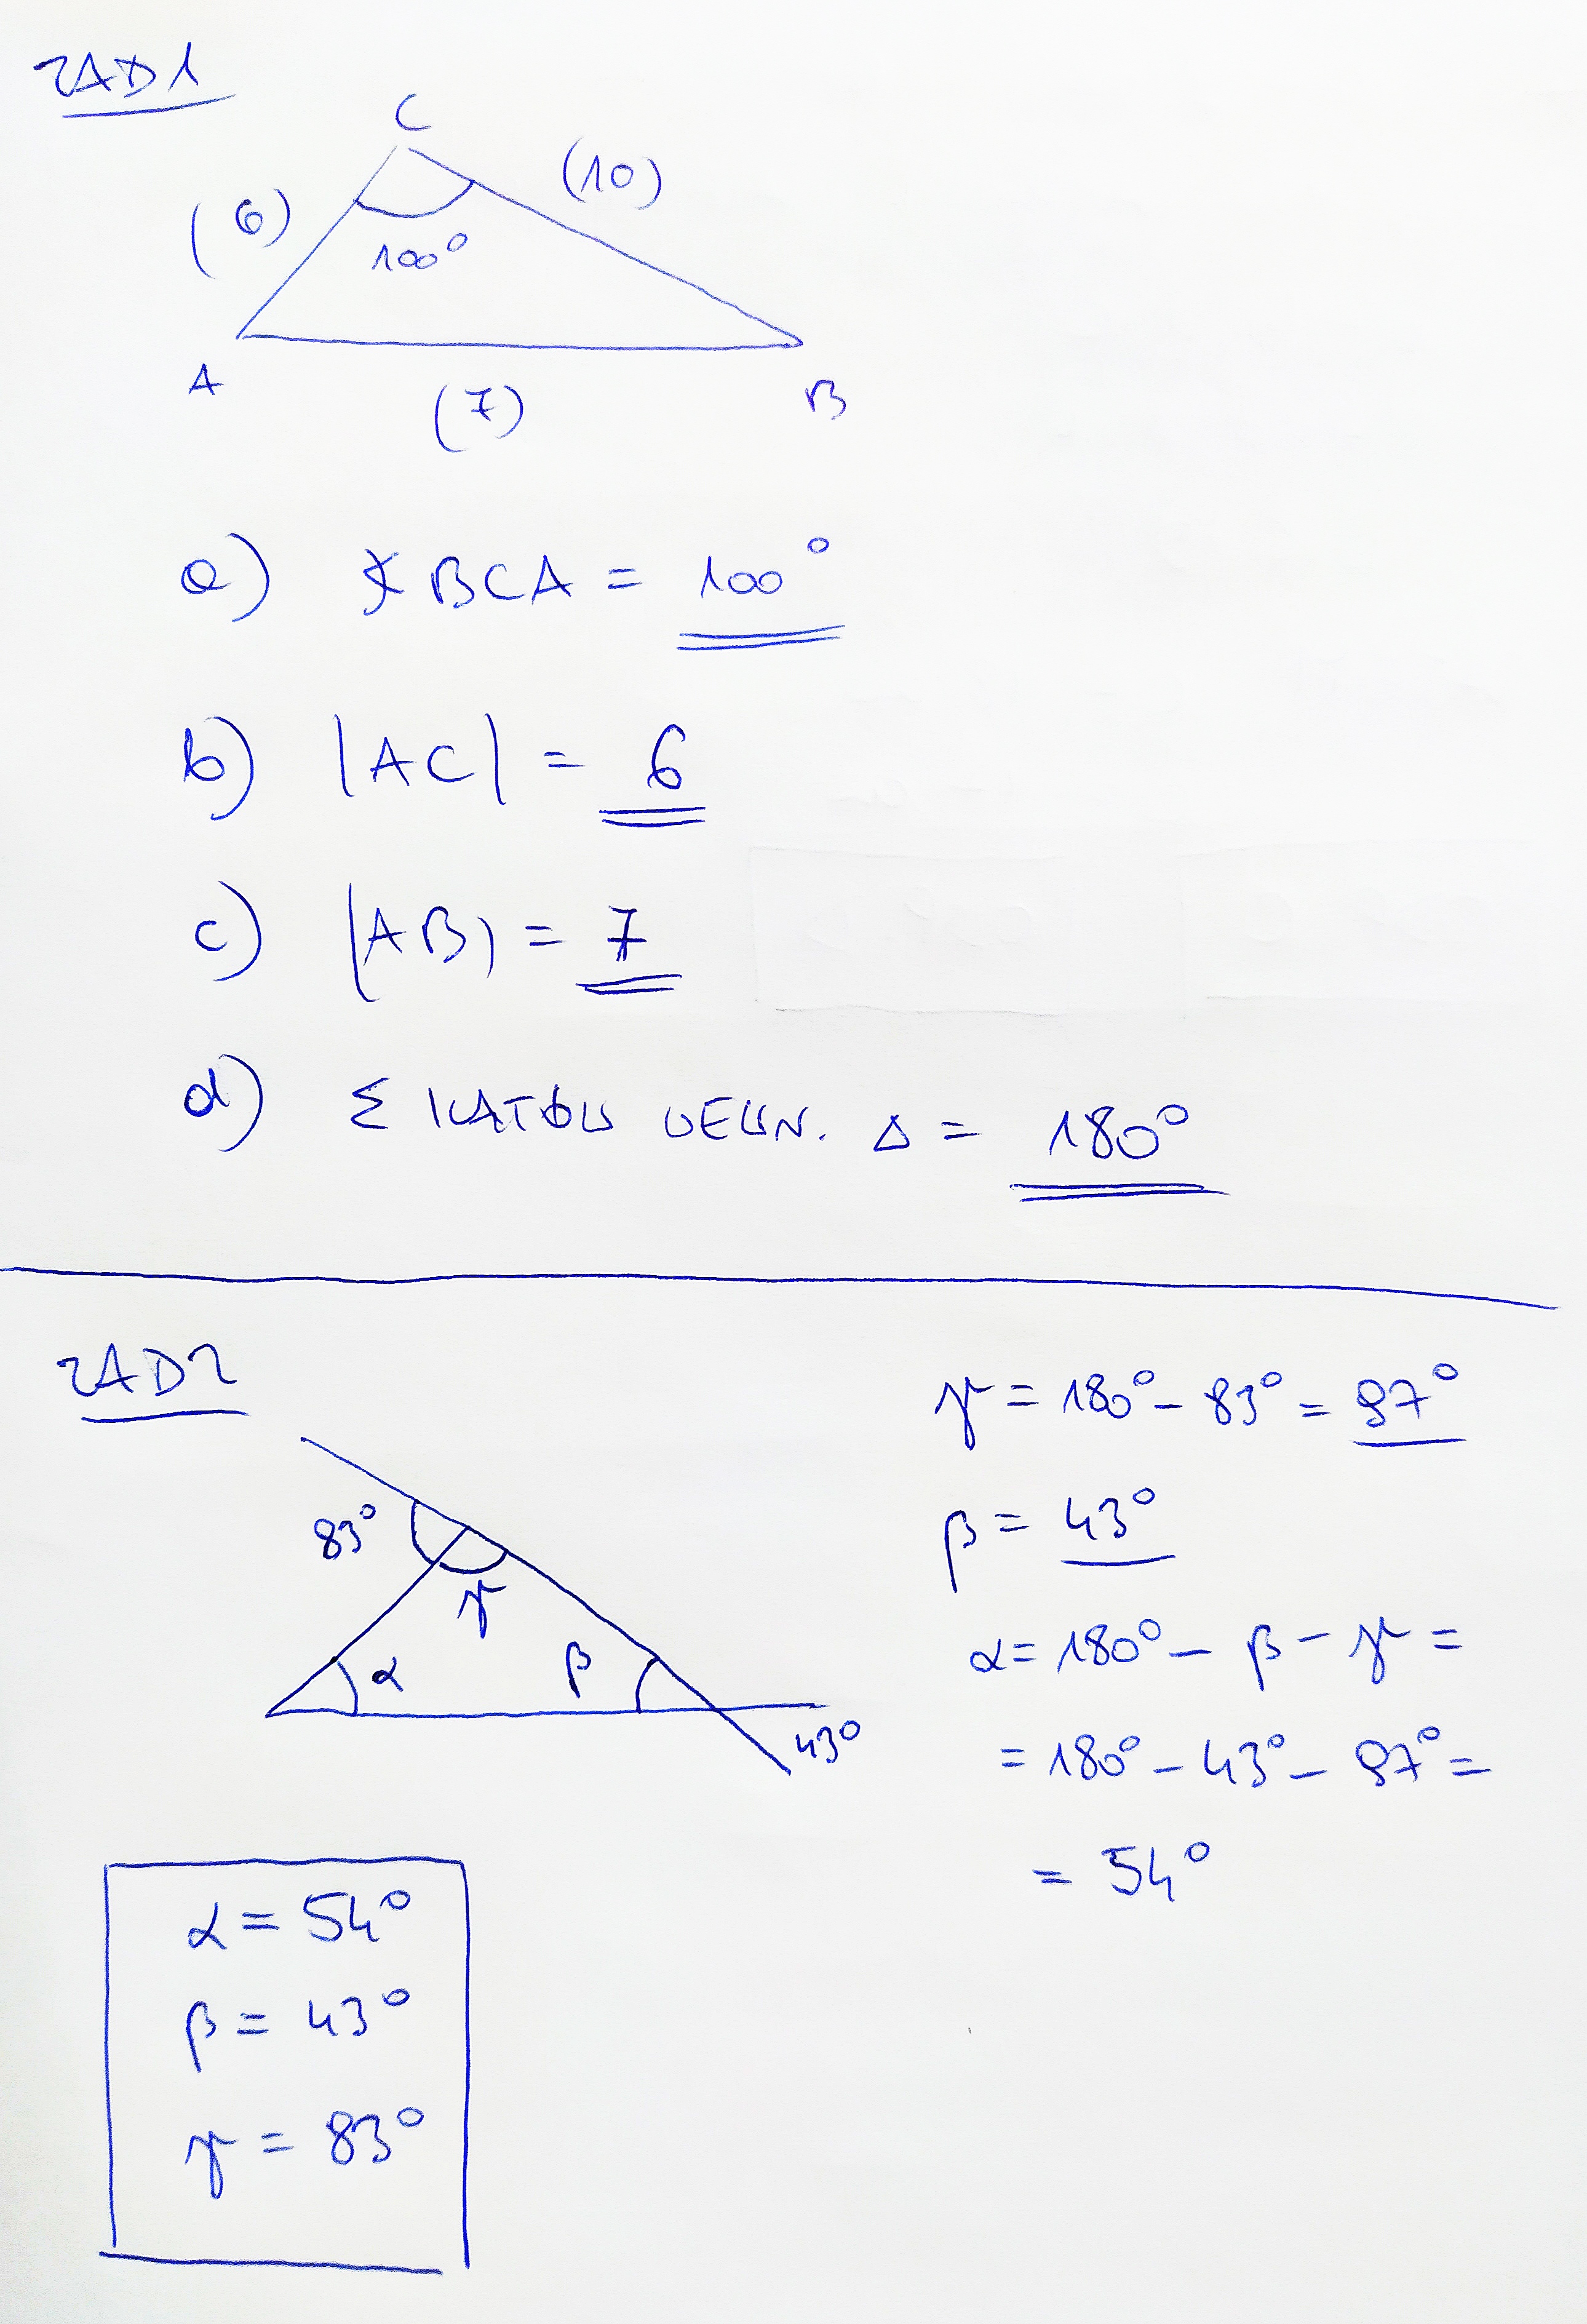 ZAD1
C
(6)
(10)
100°
A
(7)
B
a) ∢ BCA = 100°
b) |AC| = 6
c) |AB| = 7
d) Σ KATÓW WEWN. Δ = 180°
ZAD2
83°
γ
α
β
43°
γ = 180° - 83° = 97°
β = 43°
α = 180° - β - γ =
= 180° - 43° - 97° =
= 54°
α = 54°
β = 43°
γ = 83°